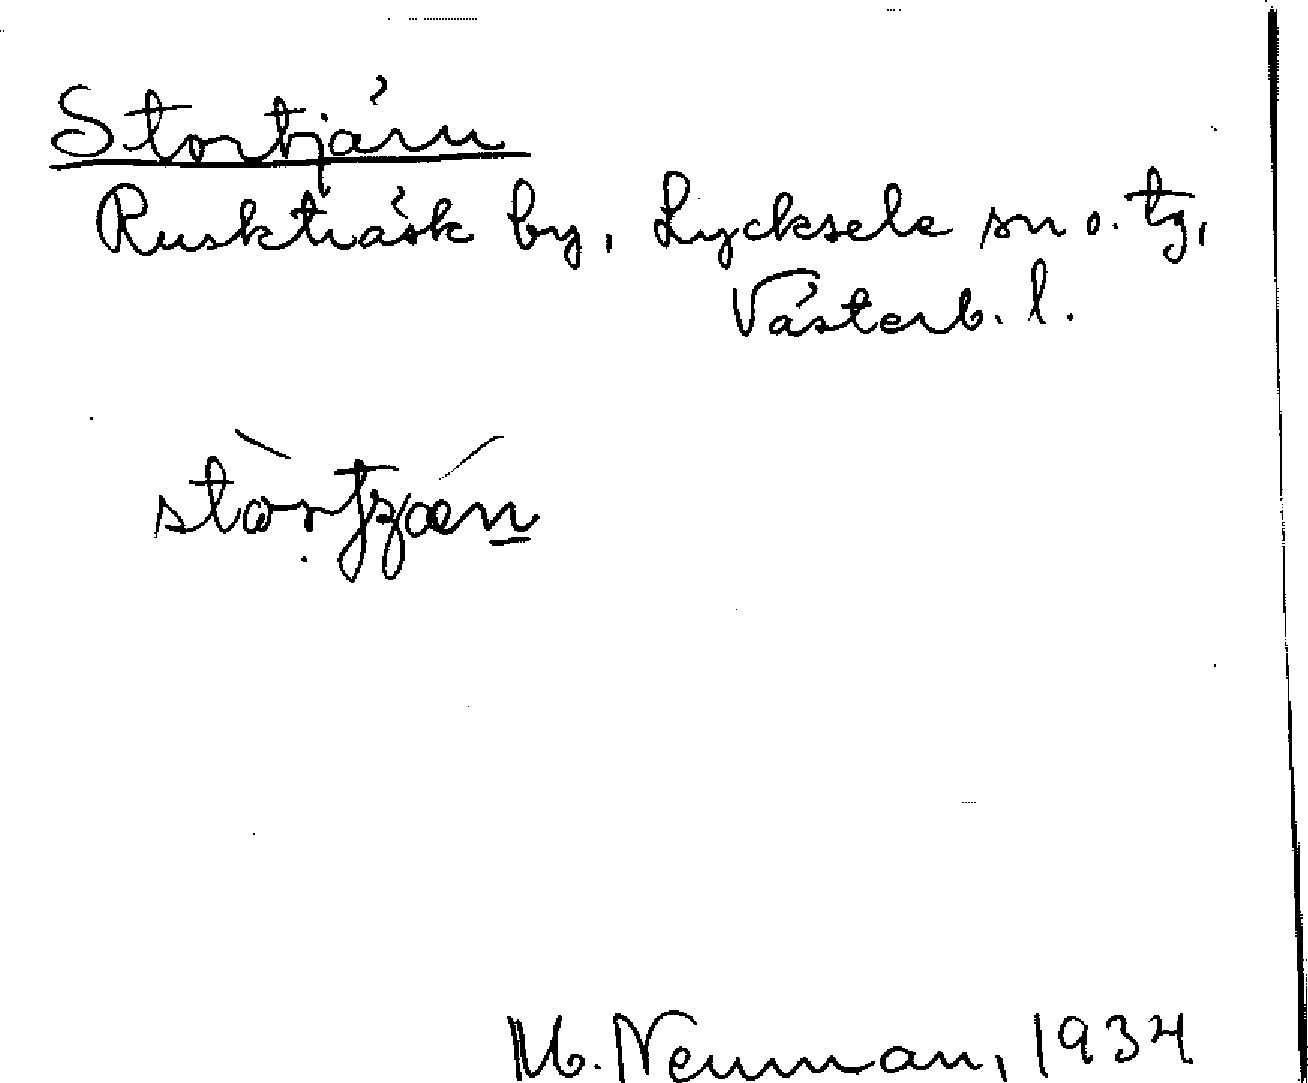 Stortjärn
Ruskträsk by, Lycksele sn o. tg,
Västerb. l.
M. Neuman, 1934